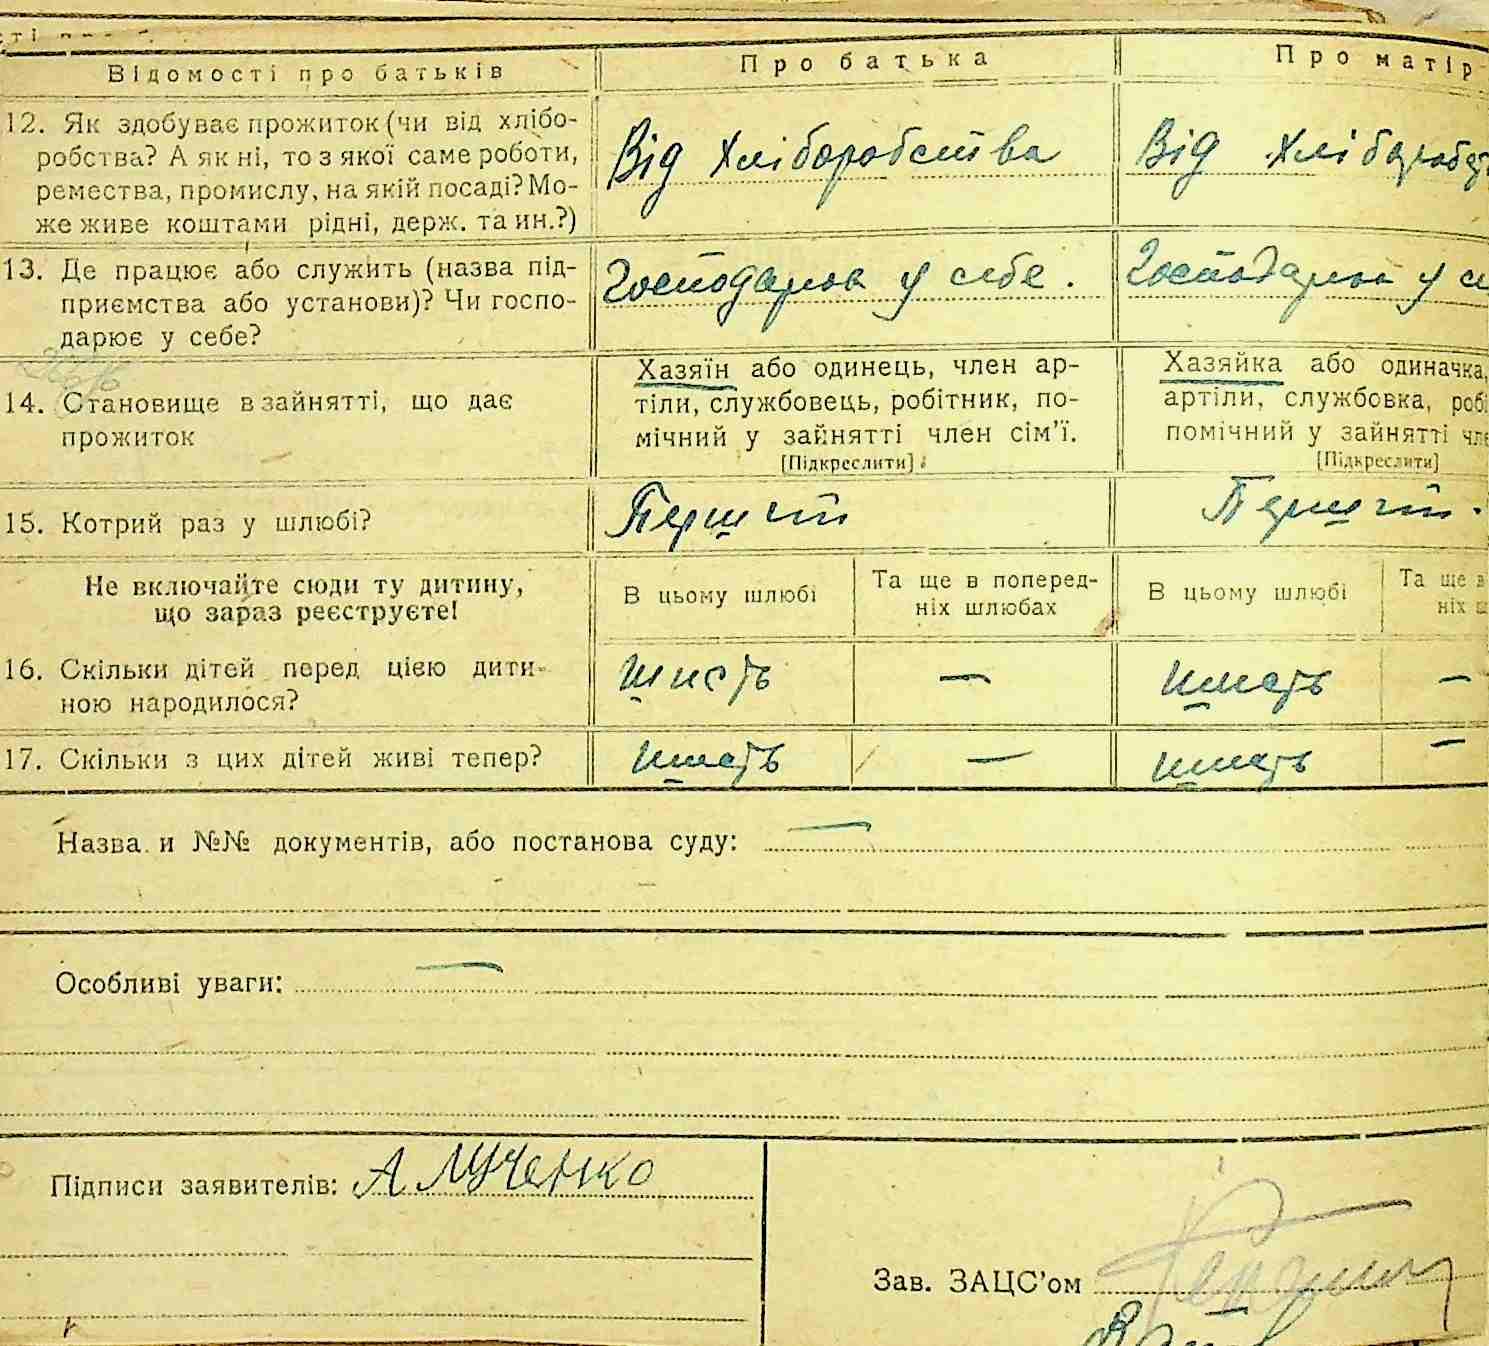 Відомості про батьків
Про батька
Про матір
12. Як здобуває прожиток (чи від хлібо-
робства? А як ні, то з якої саме роботи,
ремества, промислу, на якій посаді? Мо-
же живе коштами рідні, держ. та ин.?)
Від хліборобства
Від хлібороб
13. Де працює або служить (назва під-
приємства або установи)? Чи госпо-
дарює у себе?
Господарює у себе.
Господарює у се
14. Становище в зайнятті, що дає
прожиток
Хазяїн або одинець, член ар-
тіли, службовець, робітник, по-
мічний у зайнятті член сім'ї.
[Підкреслити]
Хазяйка або одиначка,
артіли, службовка, робі
помічний у зайнятті чле
[Підкреслити]
15. Котрий раз у шлюбі?
Перший
Перший.
Не включайте сюди ту дитину,
що зараз реєструєте!
В цьому шлюбі
Та ще в поперед-
ніх шлюбах
В цьому шлюбі
Та ще в
ніх ш
16. Скільки дітей перед цією дити-
ною народилося?
шість
—
шість
—
17. Скільки з цих дітей живі тепер?
шість
—
шість
—
Назва и №№ документів, або постанова суду: —
Особливі уваги: —
Підписи заявителів: А Лученко
Зав. ЗАЦС'ом